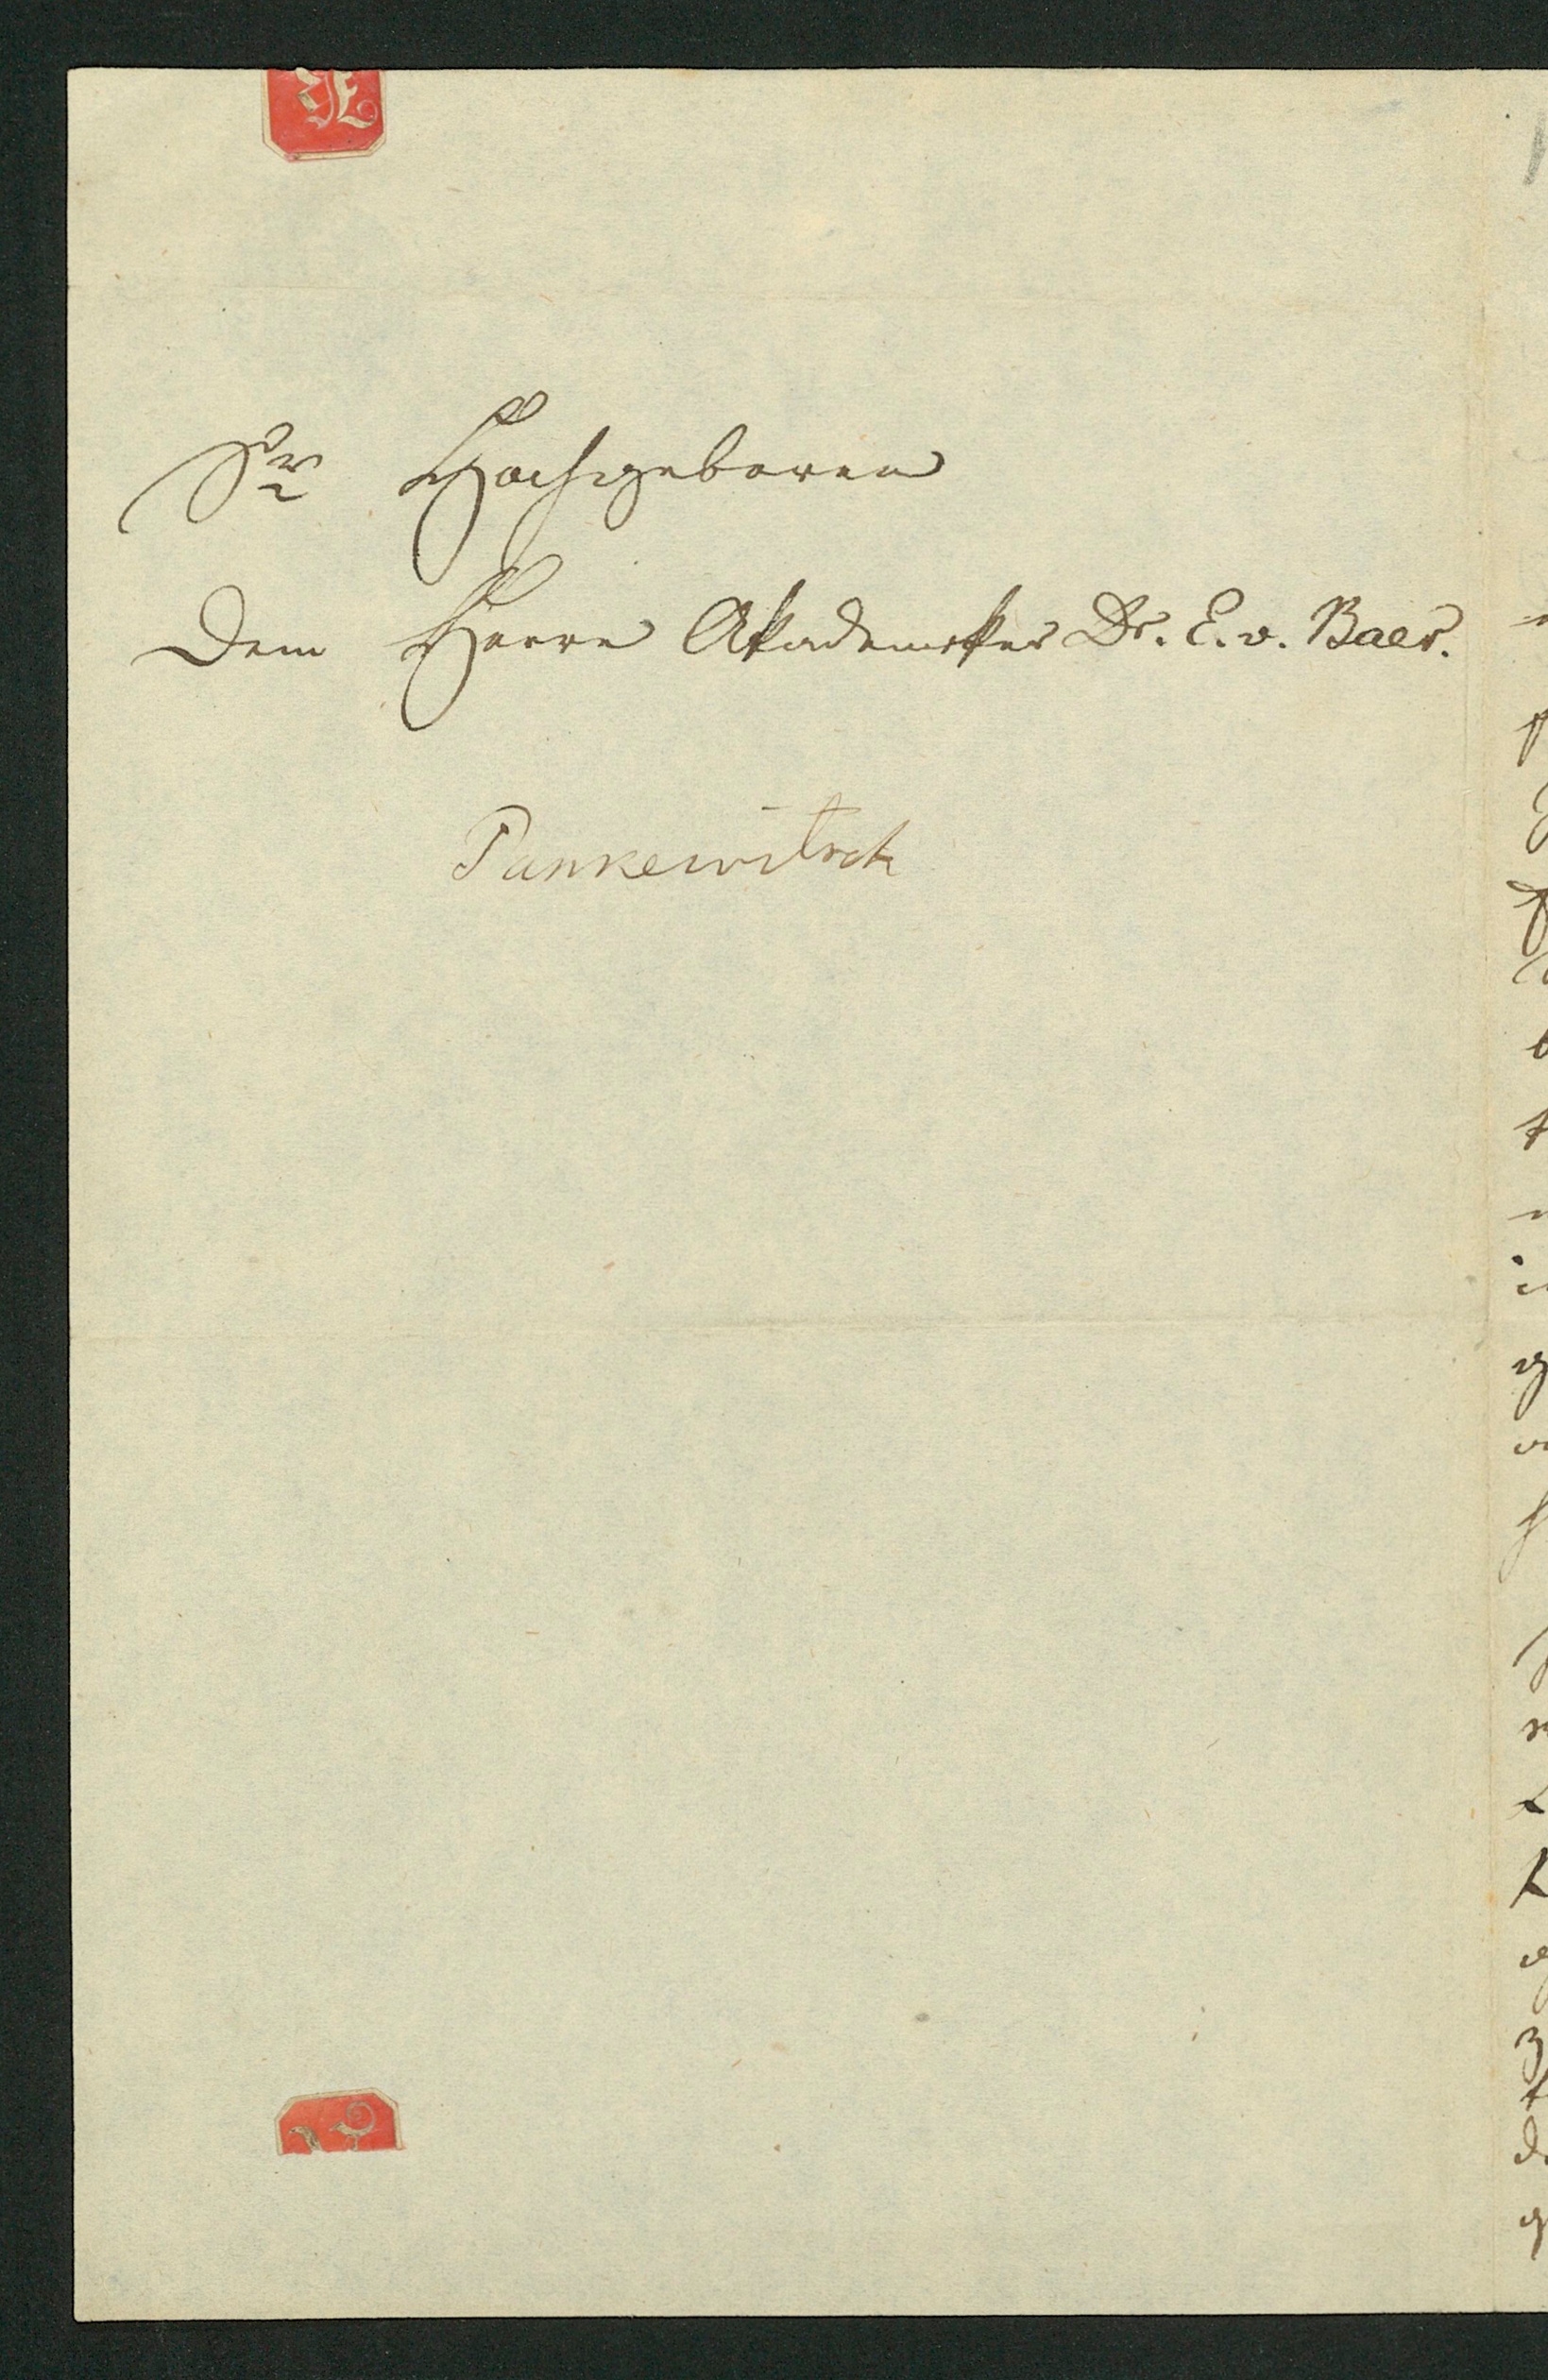 Sr Hochgeboren
Dem Herrn Akademiker Dr. E. v. Baer.
Pankewitsch